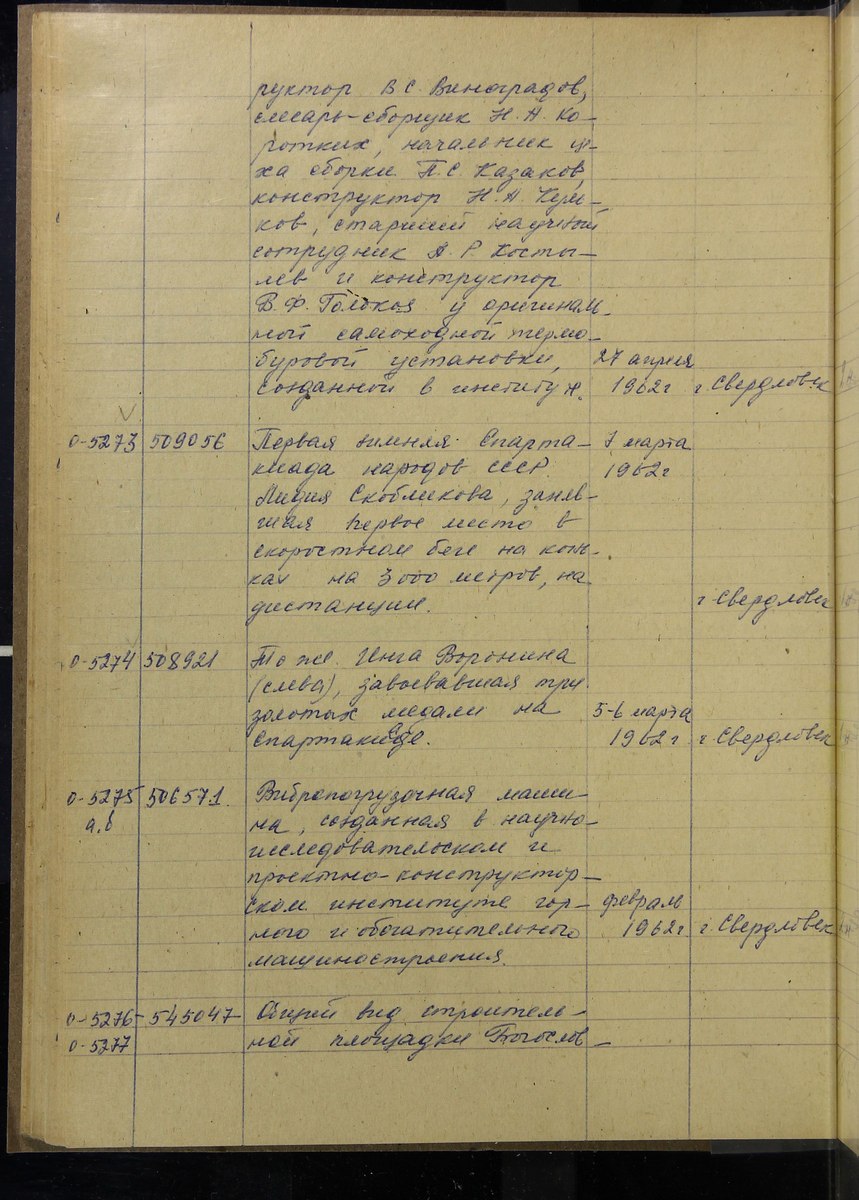 руктор В С Виноградов,
слесарь-сборщик Н. А. Ко-
ротких, начальник це-
ха сборки П. С. Казаков,
конструктор Н. А.
ков, старший научный
сотрудник А. Р. Косты-
лев и конструктор
В. Ф. у оригиналь-
ной самоходной термо-
буровой установки, 27 апреля
созданной в институте. 1962 г г Свердловск
0-5273 509056 Первая зимняя Спарта- 7 марта
киада народов СССР. 1962 г
Лидия Скобликова, заняв-
шая первое место в
скоростном беге на конь-
ках на 3000 метров, на
дистанции. г Свердловск
0-5274 508921 То же. Инга Воронина
(слева), завоевавшая три
золотых медали на 5-6 марта
спартакиаде. 1962 г г Свердловск
0-5275 506571. Вибропогрузочная маши-
а, б на, созданная в научно-
исследовательском и
проектно-конструктор-
ском институте гор- февраль
ного и обогатительного 1962 г г Свердловск
машиностроения.
0-5276- 545047 Общий вид строитель-
0-5277 ной площадки Богослов-